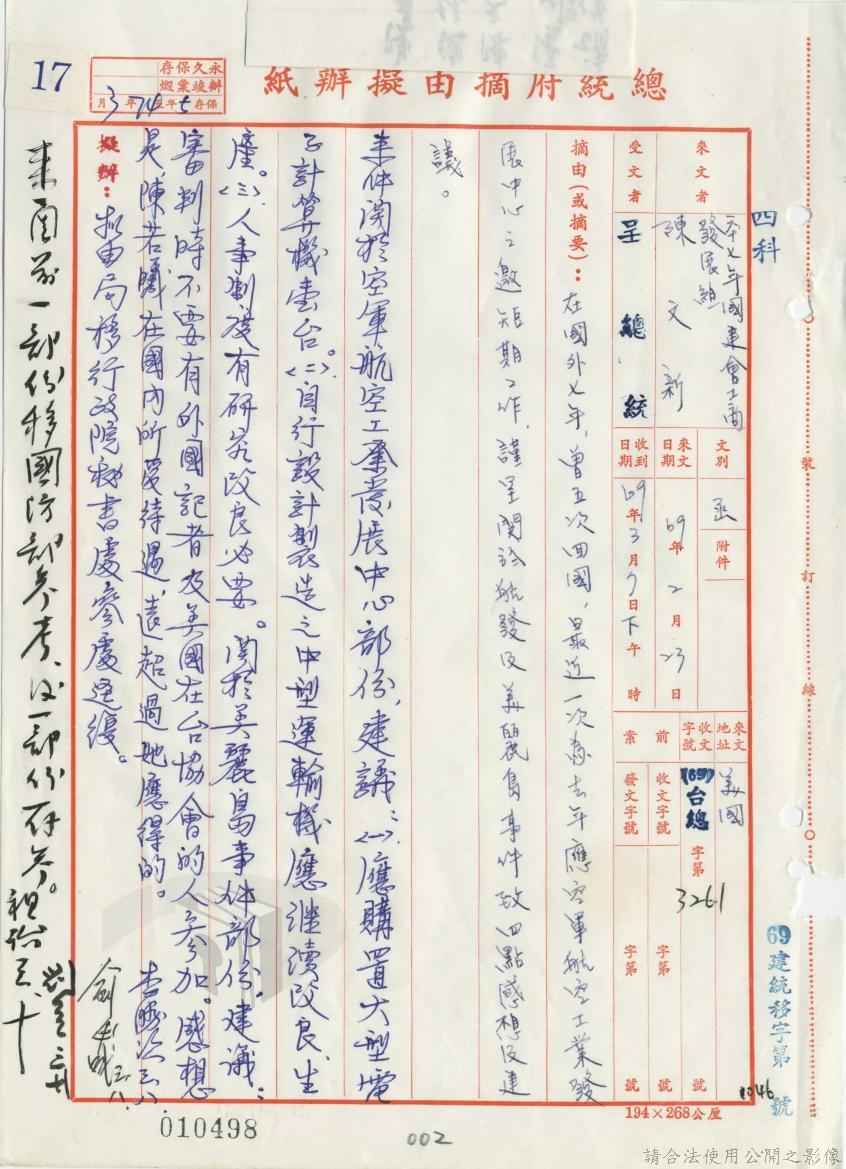 17
永久保存
辦竣彙燬
保存5年至74年3月
總統府摘由擬辦紙
四科
來文者
本七年國建會工商
發展組
陳文新
文別
函
附件
來文地址
美國
受文者
呈 總統
來文日期
69年2月23日
收到日期
69年3月7日下午 時
收文字號
(69)台總字第3261號
前案
收文字號
字第 號
發文字號
字第 號
摘由(或摘要):在國外七年,曾五次回國,最近一次為去年應空軍航空工業發
展中心之邀短期工作,謹呈関於航發及美麗島事件致四點感想及建
議。
來件関於空軍航空工業發展中心部份,建議:(一)應購置大型電
子計算機壹台。(二)自行設計製造之中型運輸機應繼續改良、生
產。(三)人事制度有研究改良必要。関於美麗島事件部份,建議:
審判時不要有外國記者及美國在台協會的人參加。感想
是,陳若曦在國內所受待遇,遠超過她應得的。
擬辦:擬由局移行政院秘書處參處逕復。
來函前一部份移國防部參考、後一部份存參。
三、十
三、八
裝訂線
69建統移字第1046號
194×268公厘
010498
002
請合法使用公開之影像